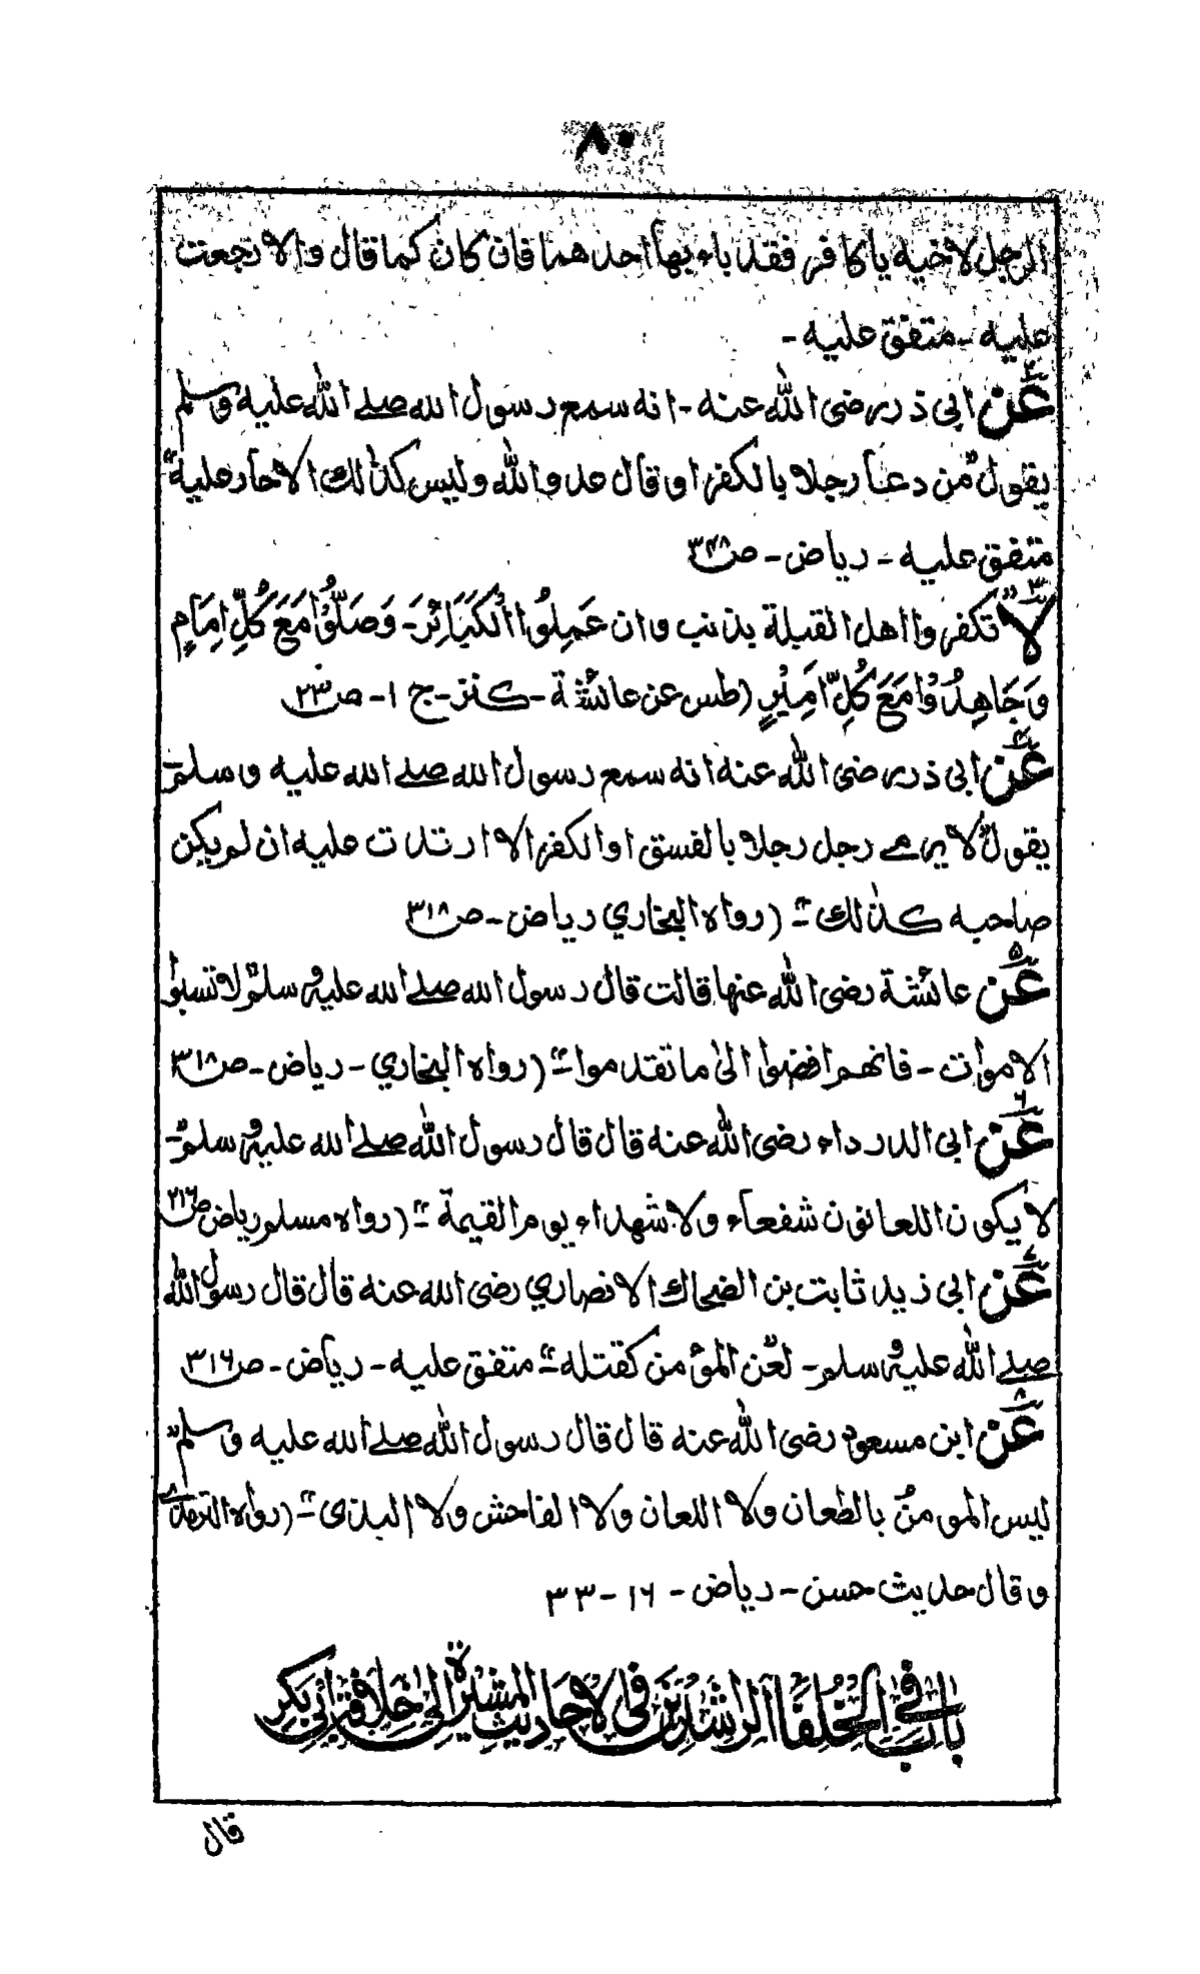 ٨٠
الرجل لاخيه ياكافر فقد باء بها احدهما فان كان كما قال والا رجعت
عليه - متفق عليه -
٢ عن ابى ذر رضى الله عنه - انه سمع رسول الله صلے الله عليه وسلم
يقول "من دعا رجلا بالكفر او قال عدو الله وليس كذالك الا حار عليه"
متفق عليه - رياض - ص٣١٨
٣ لا "تكفروا اهل القبلة بذنب وان عَمِلُوا الْكَبَائِرَ - وَصَلُّوْا مَعَ كُلِّ اِمَامٍ
وَجَاهِدُوْا مَعَ كُلِّ اَمِيْرٍ (طس عن عائشة - كنز - ج ١ - ص٢٣
٤ عن ابى ذر رضى الله عنه انه سمع رسول الله صلے الله عليه وسلم -
يقول "لا يرمے رجل رجلا بالفسق او الكفر الا ارتدت عليه ان لم يكن
صاحبه كذٰلك -" (رواه البخاري رياض - ص٣١٨
٥ عن عائشة رضى الله عنها قالت قال رسول الله صلے الله عليه وسلم "لا تسبوا
الاموات - فانهم افضوا الىٰ ما تقدموا -" (رواه البخاري - رياض - ص٣١٨
٦ عن ابى الدرداء رضى الله عنه قال قال رسول الله صلے الله عليه وسلم "-
لا يكون اللعانون شفعاء ولا شهداء يوم القيمة -" (رواه مسلم رياض ص٣١٦
٧ عن ابى زيد ثابت بن الضحاك الانصاري رضى الله عنه قال قال رسول الله
صلے الله عليه وسلم - لعن المؤمن كقتله -" متفق عليه - رياض - ص٣١٦
٨ عن ابن مسعود رضى الله عنه قال قال رسول الله صلے الله عليه وسلم "
ليس المومن بالطعان ولا اللعان ولا الفاحش ولا البذى -" (رواه الترمذى
وقال حديث حسن - رياض - ١٦ - ٣٣
باب فى الخلفاء الراشدين فى الاحاديث المشيرة الى خلافة ابى بكر
قال